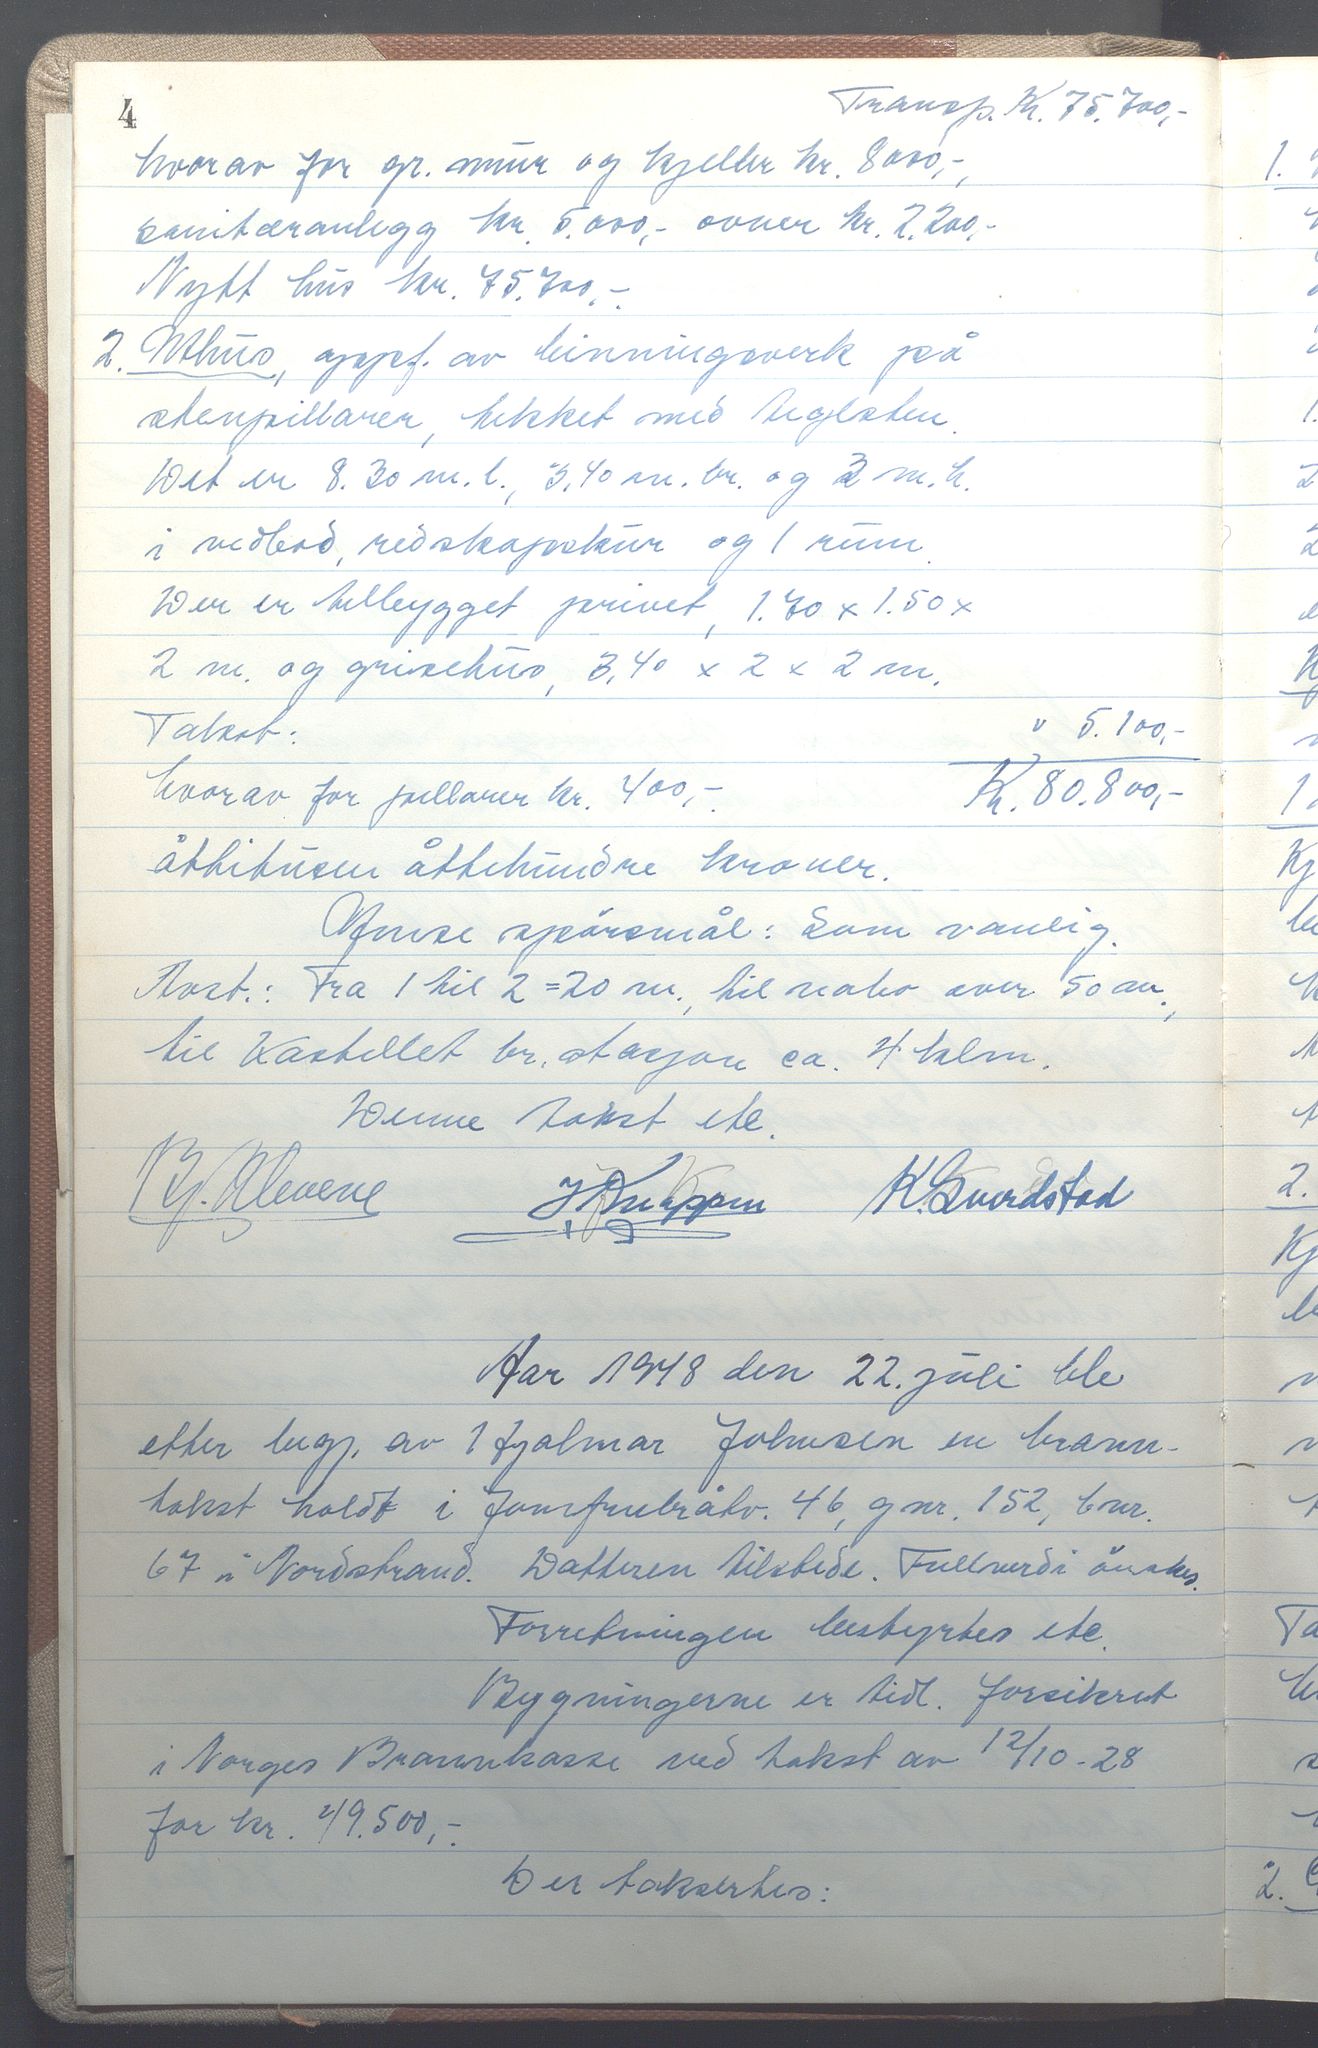 4
Transp. Kr. 75.700,-
hvorav for gr. mur og kjeller kr. 8000,-,
sanitæranlegg kr. 5.000,- ovner kr. 2.200,-
Nytt hus kr. 75.700,-.
2. Uthus, oppf. av binningsverk på
stenpillarer, tekket med teglsten.
Det er 8.30 m. l., 3,40 m. br. og 2 m. h.
i vedbod, redskapsskur og 1 rum.
Der er tilbygget privet, 1.70 x 1.50 x
2 m. og grisehus, 3,40 x 2 x 2 m.
Takst: " 5.100,-
hvorav for pillarer kr. 400,- Kr. 80.800,-
åttitusen åttehundre kroner.
Visse spörsmål: Som vanlig.
Avst.: Fra 1 til 2 = 20 m., til nabo over 50 m.,
til Kastellet br. stasjon ca. 4 klm.
Denne takst etc.
Bj. Alevene J. Knappen K. Sverdstad
Aar 1948 den 22. juli ble
etter begj. av Hjalmar Johnsen en brann-
takst holdt i Jomfrubråtv. 46, gnr. 152, bnr.
67 i Nordstrand. Datteren tilstede. Fullverdi önskes.
Forretningen bestyrtes etc.
Bygningerne er tidl. forsikret
i Norges Brannkasse ved takst av 12/10-28
for kr. 49.500,-.
Der taksertes: